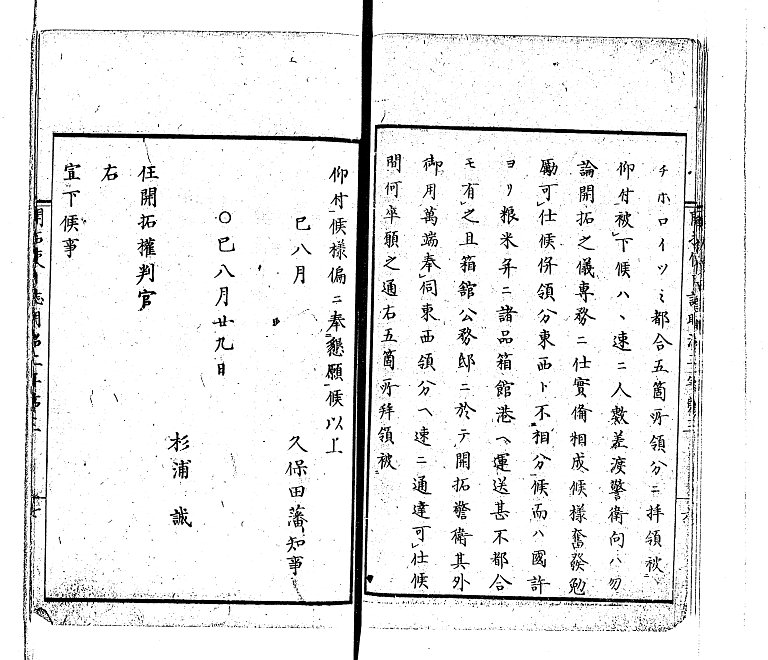 チホロイツミ都合五箇所領分ニ拝領被
仰付被下候ハヽ速ニ人数差渡警衛向ハ勿
論開拓之儀専務ニ仕實備相成候様奮發勉
勵可仕候併領分東西ト不相分候而ハ國許
ヨリ粮米并ニ諸品箱館港ヘ運送甚不都合
モ有之且箱館公務邸ニ於テ開拓警衛其外
御用萬端奉伺東西領分ヘ速ニ通達可仕候
間何卒願之通右五箇所拜領被
仰付候様偏ニ奉懇願候以上
巳八月
久保田藩知事
○巳八月廿九日
杉浦誠
任開拓權判官
右
宣下候事